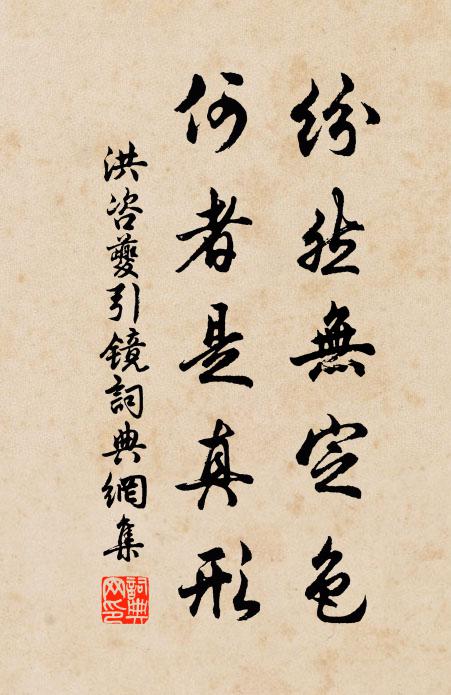 紛然無定色
何者是真形
洪咨夔引鏡詞典網集
詞典網印